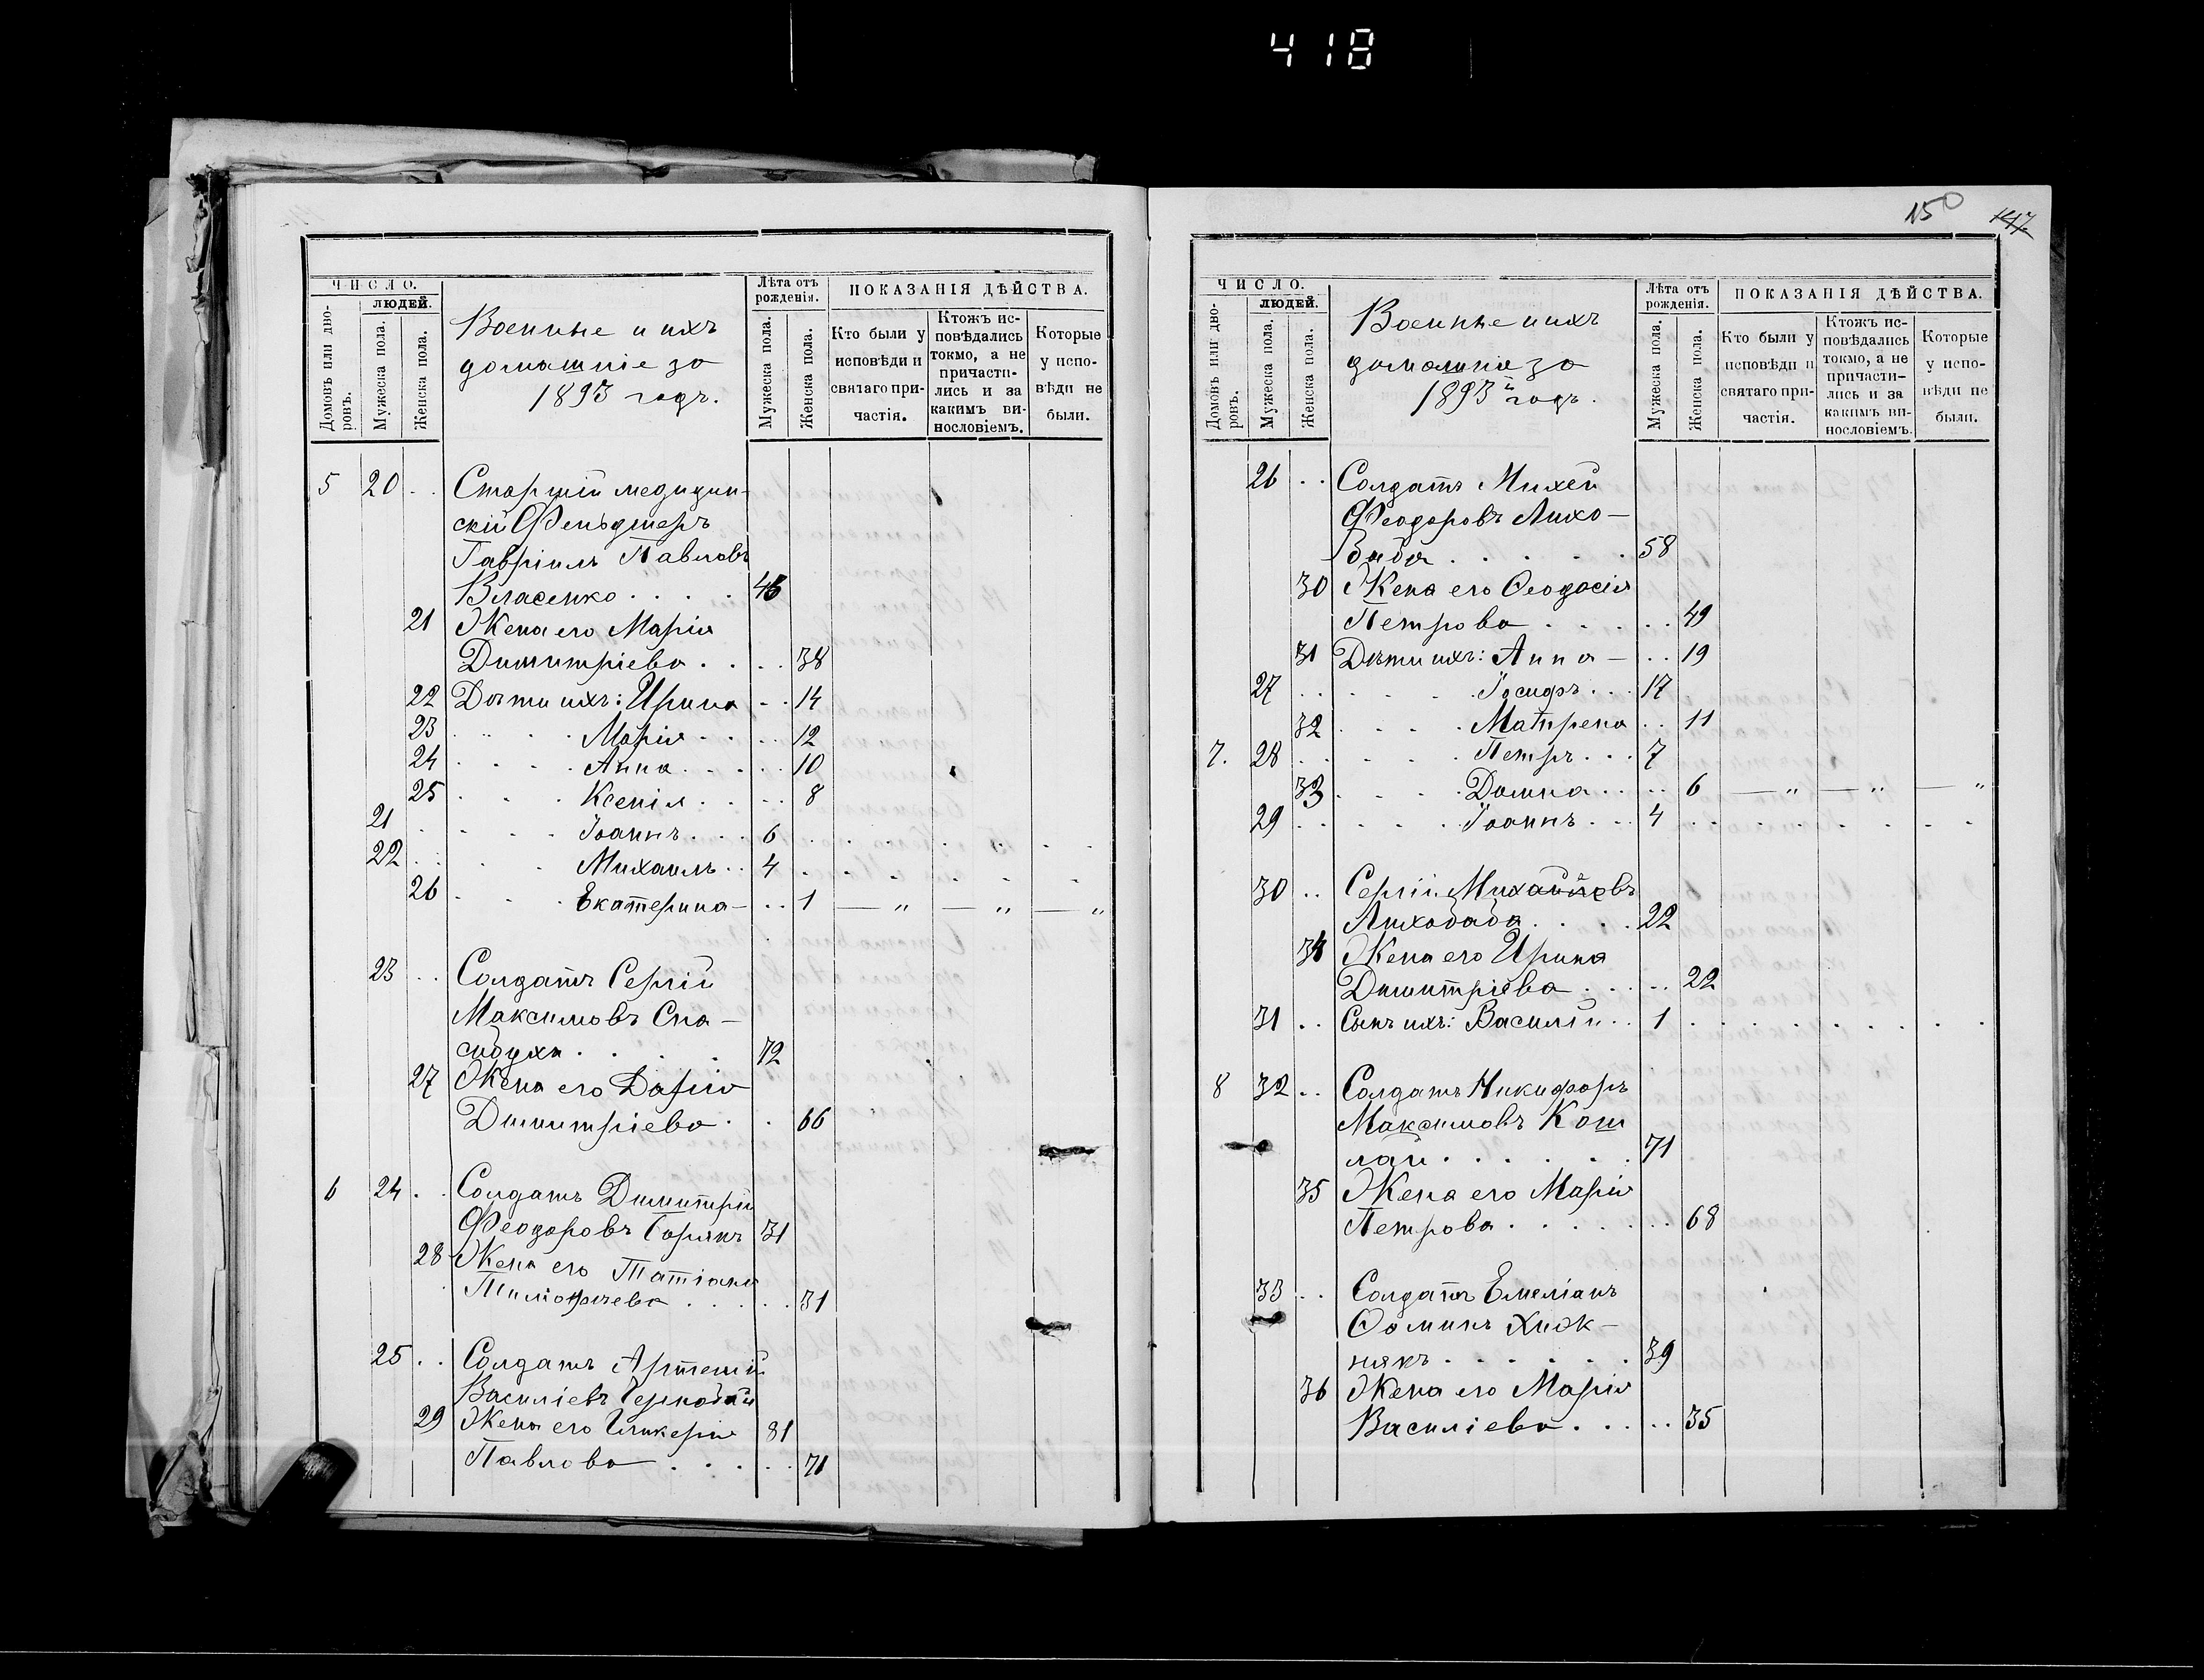 418
ЧИСЛО.
ЛЮДЕЙ.
Домовъ или дво-
ровъ.
Мужеска пола.
Женска пола.
Военные и ихъ
домашніе за
1893 годъ.
Лѣта отъ
рожденія.
Мужеска пола.
Женска пола.
ПОКАЗАНІЯ ДѢЙСТВА.
Кто были у
исповѣди и
святаго при-
частія.
Ктожъ ис-
повѣдались
токмо, а не
причасти-
лись и за
какимъ ви-
нословіемъ.
Которые
у испо-
вѣди не
были.
5 20 . . Старшій медицин-
скій Фельдшеръ
Гавріилъ Павловъ
Власенко . . . .
21 Жена его Марія
Димитріева . . . . 38
22 Дѣти ихъ: Ирина . . 14
23 . . . . Марія . . . . 12
24 . . . . Анна . . . . 10
25 . . . Ксенія . . . . 8
21 . . . . Іоаннъ . . . 6 . . . . . . .
22 . . . . Михаилъ . . 4 . . . . . .
26 . . . Екатерина — . . 1 — „ — „ — „
23 . . Солдатъ Сергій
Максимовъ Спа-
сибухъ . . . . 72
27 Жена его Дарія
Димитріева . . 66
6 24 . . Солдатъ Димитрій
Феодоровъ Горянъ 31
28 Жена его Татіана
Тимофѣева . . . . . 31
25 . . Солдатъ Артемій
Василіевъ
29 Жена его Гликерія 81
Павлова . . . . . 71
150 147.
ЧИСЛО.
ЛЮДЕЙ.
Домовъ или дво-
ровъ.
Мужеска пола.
Женска пола.
Военные и ихъ
домашніе за
1893 й годъ.
Лѣта отъ
рожденія.
Мужеска пола.
Женска пола.
ПОКАЗАНІЯ ДѢЙСТВА.
Кто были у
исповѣди и
святаго при-
частія.
Ктожъ ис-
повѣдались
токмо, а не
причасти-
лись и за
какимъ ви-
нословіемъ.
Которые
у испо-
вѣди не
были.
26 . . Солдатъ Михей
Феодоровъ Лихо-
баба . . . . . 58
30 Жена его Ѳеодосія
Петрова . . . . . . 49
31 Дѣти ихъ: Анна — . . 19
27 . . . . . Іосифъ . . . 17
32 . . . . Матрена . . 11
7. 28 . . . . . Петръ . . . 7
33 . . . . Домна . . . . 6 — „ — „ — „
29 . . . . . Іоаннъ . . . 4 . . . . . . . .
30 . . Сергій Михайловъ
Лихобаба . . . . 22
34 Жена его Ирина
Димитріева . . . . 22
31 . . Сынъ ихъ: Василій . . 1 . . . . . . . .
8 32 . . Солдатъ Никифоръ
Максимовъ Кош
лай . . . . . . 71
35 Жена его Марія
Петрова . . . . . . . 68
33 . . Солдатъ Емеліанъ
Ѳоминъ Хиж-
някъ . . . . . . 39
36 Жена его Марія
Василіева . . . . . 35